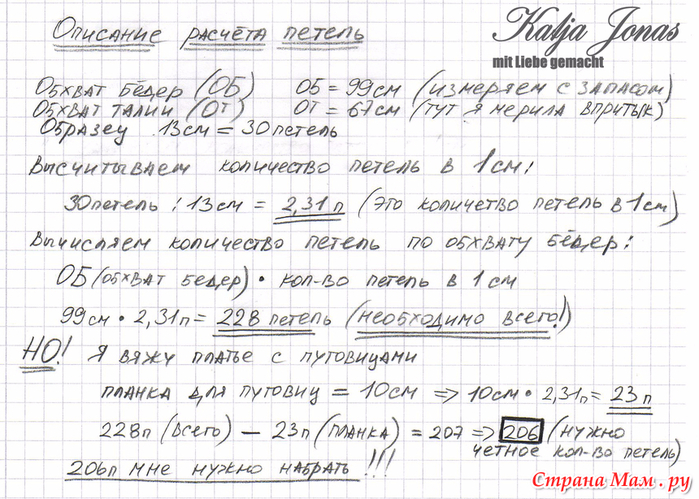 Описание расчёта петель
Katja Jonas
mit Liebe gemacht
Обхват бёдер (ОБ) ОБ = 99см (измеряем с запасом)
Обхват талии (ОТ) ОТ = 67см (тут я мерила впритык)
Образец 13см = 30петель
Высчитываем количество петель в 1см:
30петель : 13см = 2,31п (это количетво петель в 1см)
Вычисляем количество петель по обхвату бёдер:
ОБ (обхват бедер) • кол-во петель в 1см
99см • 2,31п = 228 петель (необходимо всего!)
НО! я вяжу платье с пуговицами
планка для пуговиц = 10см => 10см • 2,31п = 23п
228п (всего) — 23п (планка) = 207 => 206 (нужно
четное кол-во петель)
206п мне нужно набрать!!!
Страна Мам.ру